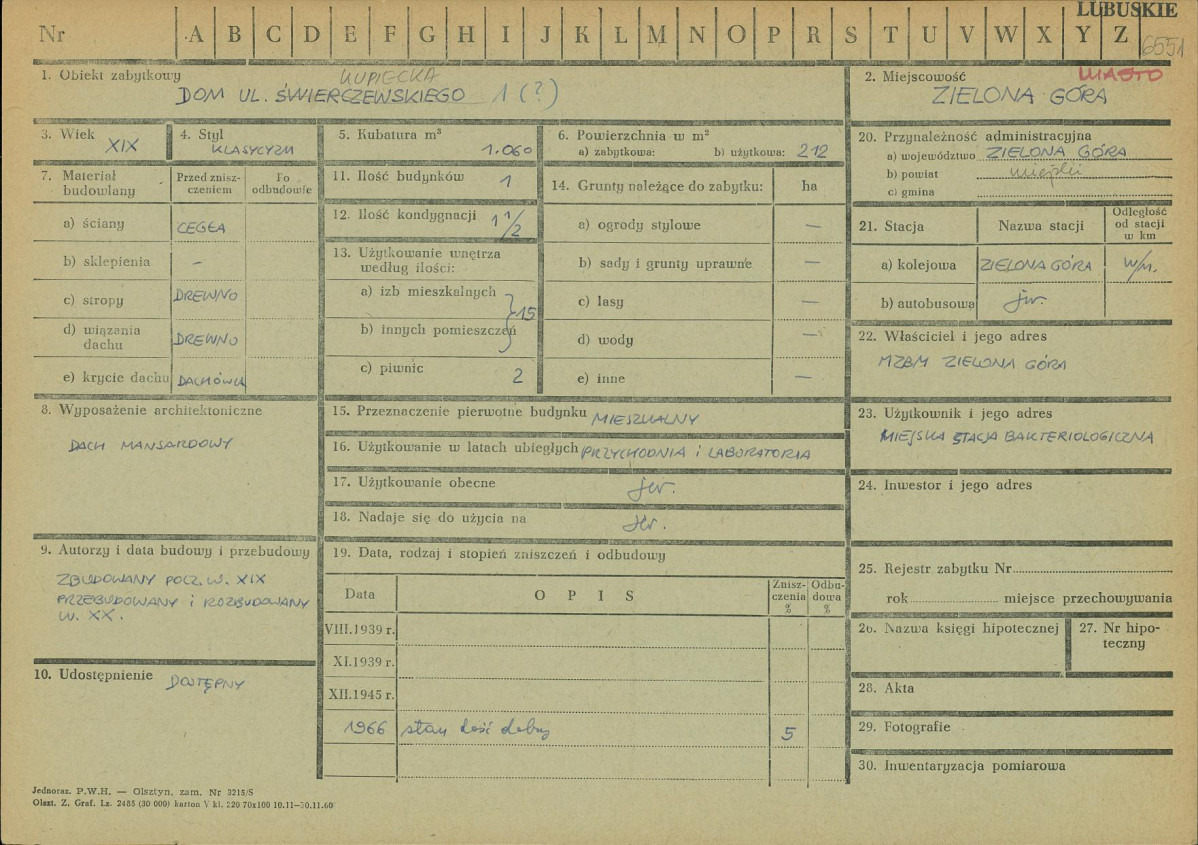 LUBUSKIE
Nr A B C D E F G H I J K L M N O P R S T U V W X Y Z 6551
1. Obiekt zabytkowy KUPIECKA
DOM UL. ŚWIERCZEWSKIEGO 1 (?)
2. Miejscowość MIASTO
ZIELONA GÓRA
3. Wiek XIX
4. Styl KLASYCYZM
5. Kubatura m³ 1.060
6. Powierzchnia w m²
a) zabytkowa: b) użytkowa: 212
7. Materiał budowlany
Przed zniszczeniem
Po odbudowie
a) ściany CEGŁA
b) sklepienia –
c) stropy DREWNO
d) wiązania dachu DREWNO
e) krycie dachu DACHÓWKA
8. Wyposażenie architektoniczne
DACH MANSARDOWY
9. Autorzy i data budowy i przebudowy
ZBUDOWANY POCZ. W. XIX
PRZEBUDOWANY I ROZBUDOWANY
W. XX.
10. Udostępnienie DOSTĘPNY
11. Ilość budynków 1
12. Ilość kondygnacji 1 1/2
13. Użytkowanie wnętrza
według ilości:
a) izb mieszkalnych
b) innych pomieszczeń } 15
c) piwnic 2
14. Grunty należące do zabytku: ha
a) ogrody stylowe –
b) sady i grunty uprawne –
c) lasy –
d) wody –
e) inne –
15. Przeznaczenie pierwotne budynku MIESZKALNY
16. Użytkowanie w latach ubiegłych PRZYCHODNIA I LABORATORIA
17. Użytkowanie obecne jw.
18. Nadaje się do użycia na jw.
19. Data, rodzaj i stopień zniszczeń i odbudowy
Data OPIS Zniszczenia % Odbudowa %
VIII.1939 r.
XI.1939 r.
XII.1945 r.
1966 stan dość dobry 5
20. Przynależność administracyjna
a) województwo ZIELONA GÓRA
b) powiat miejski
c) gmina
21. Stacja Nazwa stacji Odległość od stacji w km
a) kolejowa ZIELONA GÓRA w/m.
b) autobusowa jw.
22. Właściciel i jego adres
MZBM ZIELONA GÓRA
23. Użytkownik i jego adres
MIEJSKA STACJA BAKTERIOLOGICZNA
24. Inwestor i jego adres
25. Rejestr zabytku Nr
rok miejsce przechowywania
26. Nazwa księgi hipotecznej
27. Nr hipoteczny
28. Akta
29. Fotografie
30. Inwentaryzacja pomiarowa
Jednoraz. P.W.H. — Olsztyn, zam. Nr 3215/S
Olszt. Z. Graf. Lz. 2485 (30 000) karton V kl. 220 70x100 10.11—30.11.60